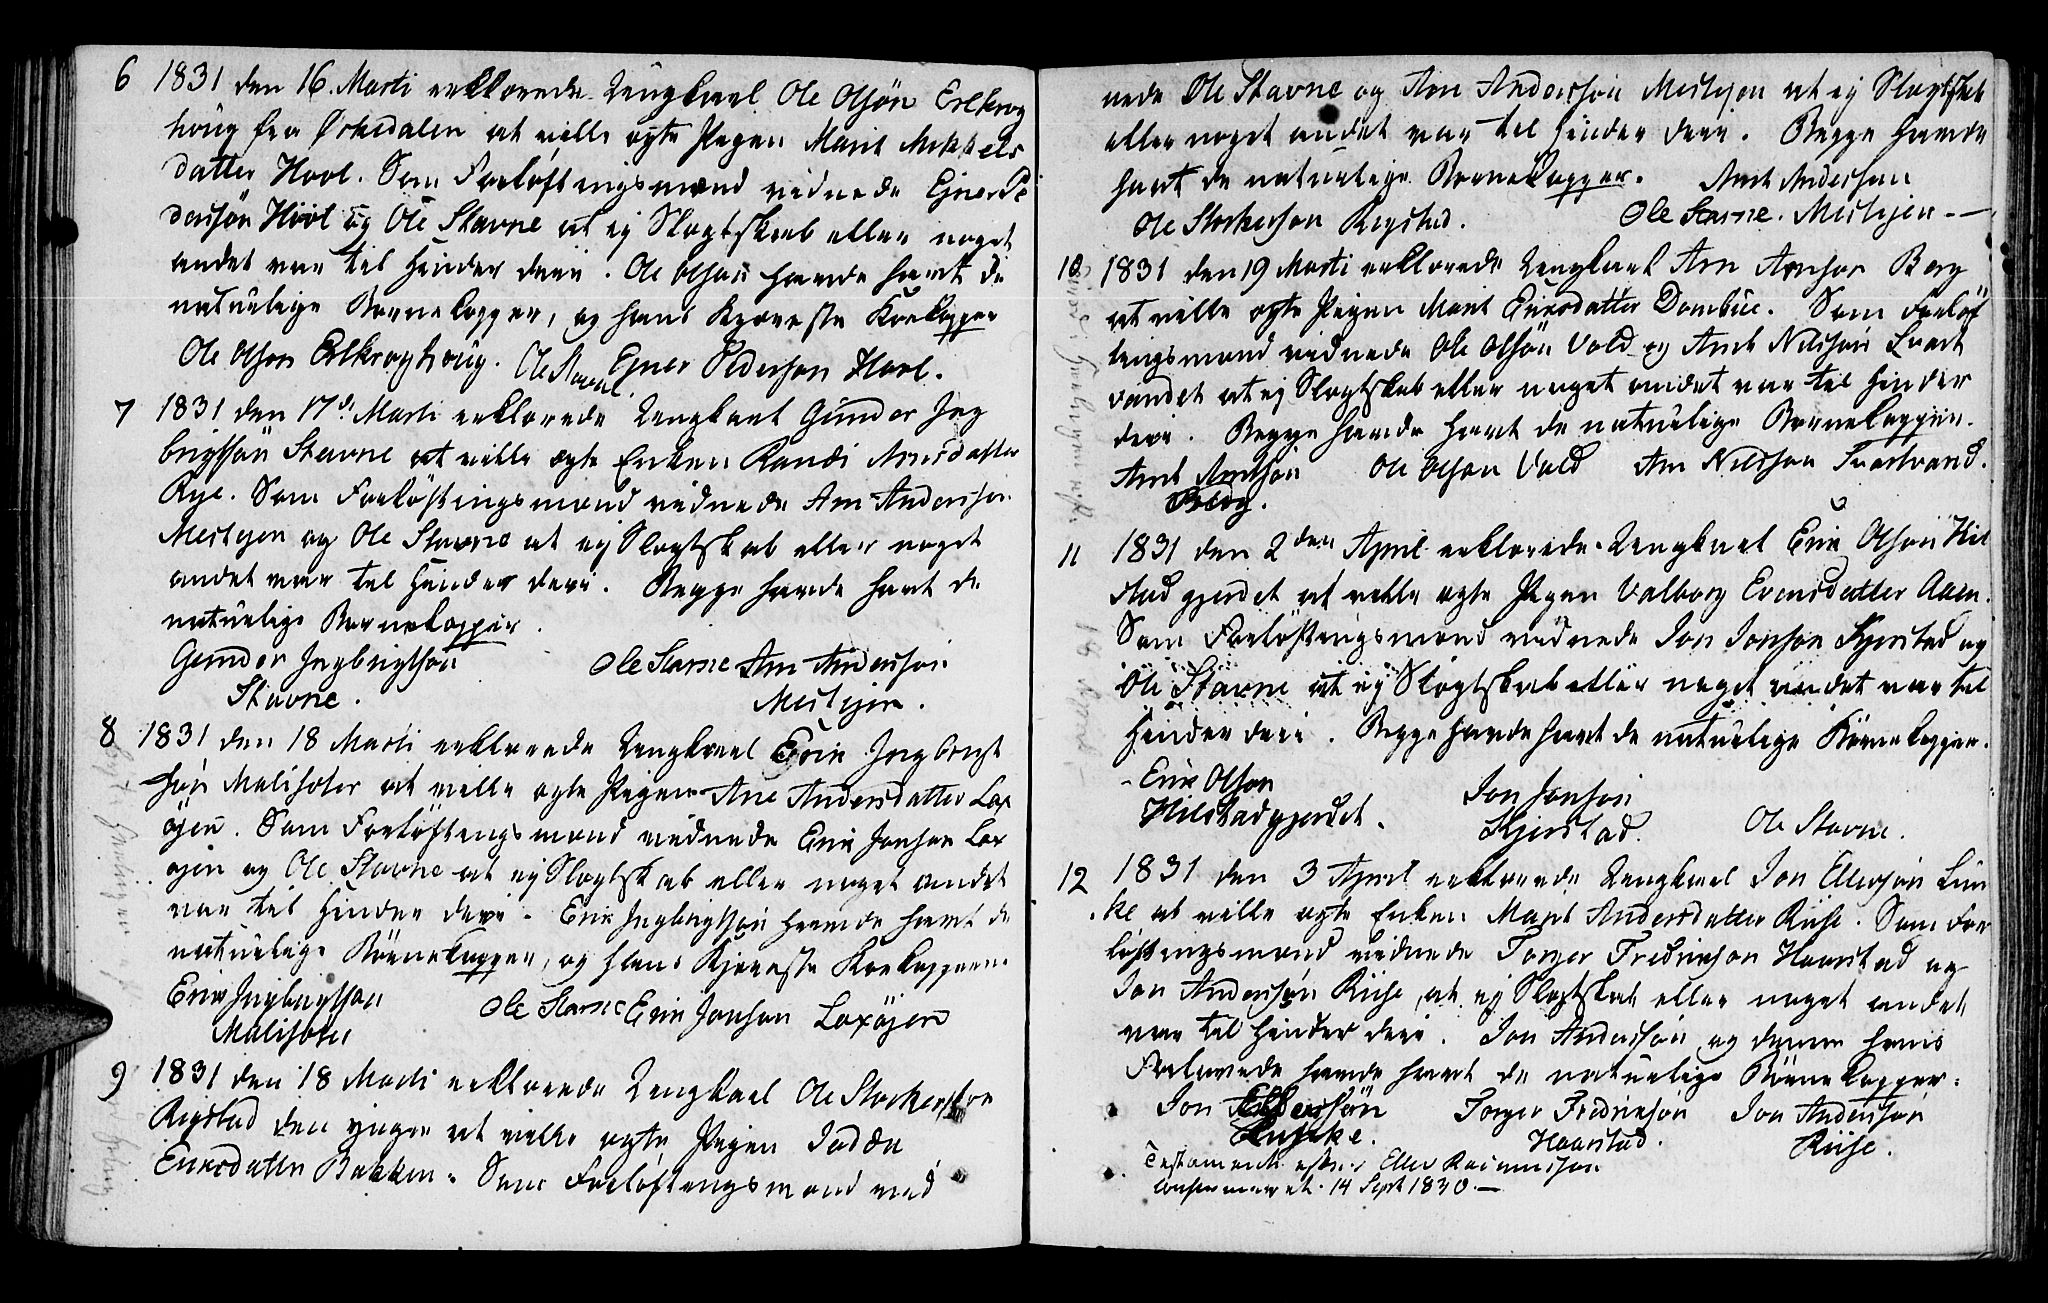 6 1831 den 16. Marti erklærede Ungkarl Ole Olsøn Erlkrog
houg fra Ørkedalen at ville ægte Pigen Marit Mikkels
datter Hovl. Som Forløftningsmænd vidnede Ejner Pe
dersøn Hovl og Ole Stavne at ej Slægtskab eller noget
andet var til Hinder deri. Ole Olsøn havde havt de
naturlige Børnekopper, og hans Kjæreste Kokopper
Ole Olson Erlkroghoug. Ole Stavne Ejner Pederson Hovl.
7 1831 den 17d. Marti erklærede Ungkarl Gunder Ing
brigtsøn Stavne at ville ægte Enken Randi Arntsdatter
Rye. Som Forløftningsmænd vidnede Arn Andersøn
Mestejen og Ole Stavne at ej Slægtskab eller noget
andet var til Hinder deri. Begge havde havt de
naturlige Børnekopper.
Gunder Ingbrigtson Ole Stavne Arn Anderson
Stavne. Mestejen.
8 1831 den 18 Marti erklærede Ungkarl Erik Ingbrigt
søn Malisæter at ville ægte Pigen Ane Andersdatter Lox
øjen. Som Forløftningsmænd vidnede Erik Jonson Lox
øjen og Ole Stavne at ej Slægtskab eller noget andet
var til Hinder deri. Erik Ingbrigtsøn havde havt de
naturlige Børnekopper, og hans Kjæreste Kokopperne
Erik Ingbrigtson Ole Stavne Erik Jonson Loxöjen
Malisøter
9 1831 den 18 Marti erklærede Ungkarl Ole Storkerson
Rygstad den yngre at ville ægte Pigen
Eriksdatter Bakken. Som Forløftningsmænd vid
nede Ole Stavne og Arn Andersøn Mestejen at ej Slægtskab
eller noget andet var til Hinder deri. Begge havde
havt de naturlige Børnekopper. Arnt Anderson
Ole Storkerson Rygstad. Ole Stavne. Mestejen
10 1831 den 19 Marti erklærede Ungkarl Arn Arnson Berg
at ville ægte Pigen Marit Eriksdatter Dombue. Som Forløft
ningsmænd vidnede Ole Olsøn Vold og Arnt Nilsøn Svart
vandet at ej Slægtskab eller noget andet var til Hinder
deri. Begge havde havt de naturlige Børnekopper.
Arnt Arntson Ole Olson Vold Arn Nilsson Svartvand.
Berg.
11 1831 den 2den April erklærede Ungkarl Erik Olsøn Hil
stadgjerdet at ville ægte Pigen Valborg Evensdatter Aaen.
Som Forløftningsmænd vidnede Jon Jonson Kjerstad og
Ole Stavne at ej Slægtskab eller noget andet var til
Hinder deri. Begge havde havt de naturlige Børnekopper.
Erik Olson Jon Jonson
Hilstadgjerdet. Kjerstad. Ole Stavne.
12 1831 den 3 April erklærede Ungkarl Jon Ellefsøn Lun
ke at ville ægte Enken Marit Andersdatter Riise. Som For
løftningsmænd vidnede Torger Fredrikson Haarstad og
Jon Andersøn Riise, at ej Slægtskab eller noget andet
var til Hinder deri. Jon Andersøn og denne hans
Forlovede havde havt de naturlige Børnekopper.
Jon Torger Fredriksøn Jon Andersøn
Haarstad. Riise.
Testamente efter Ellef Rasmussøn
confirmeret. 14 Sept 1830.